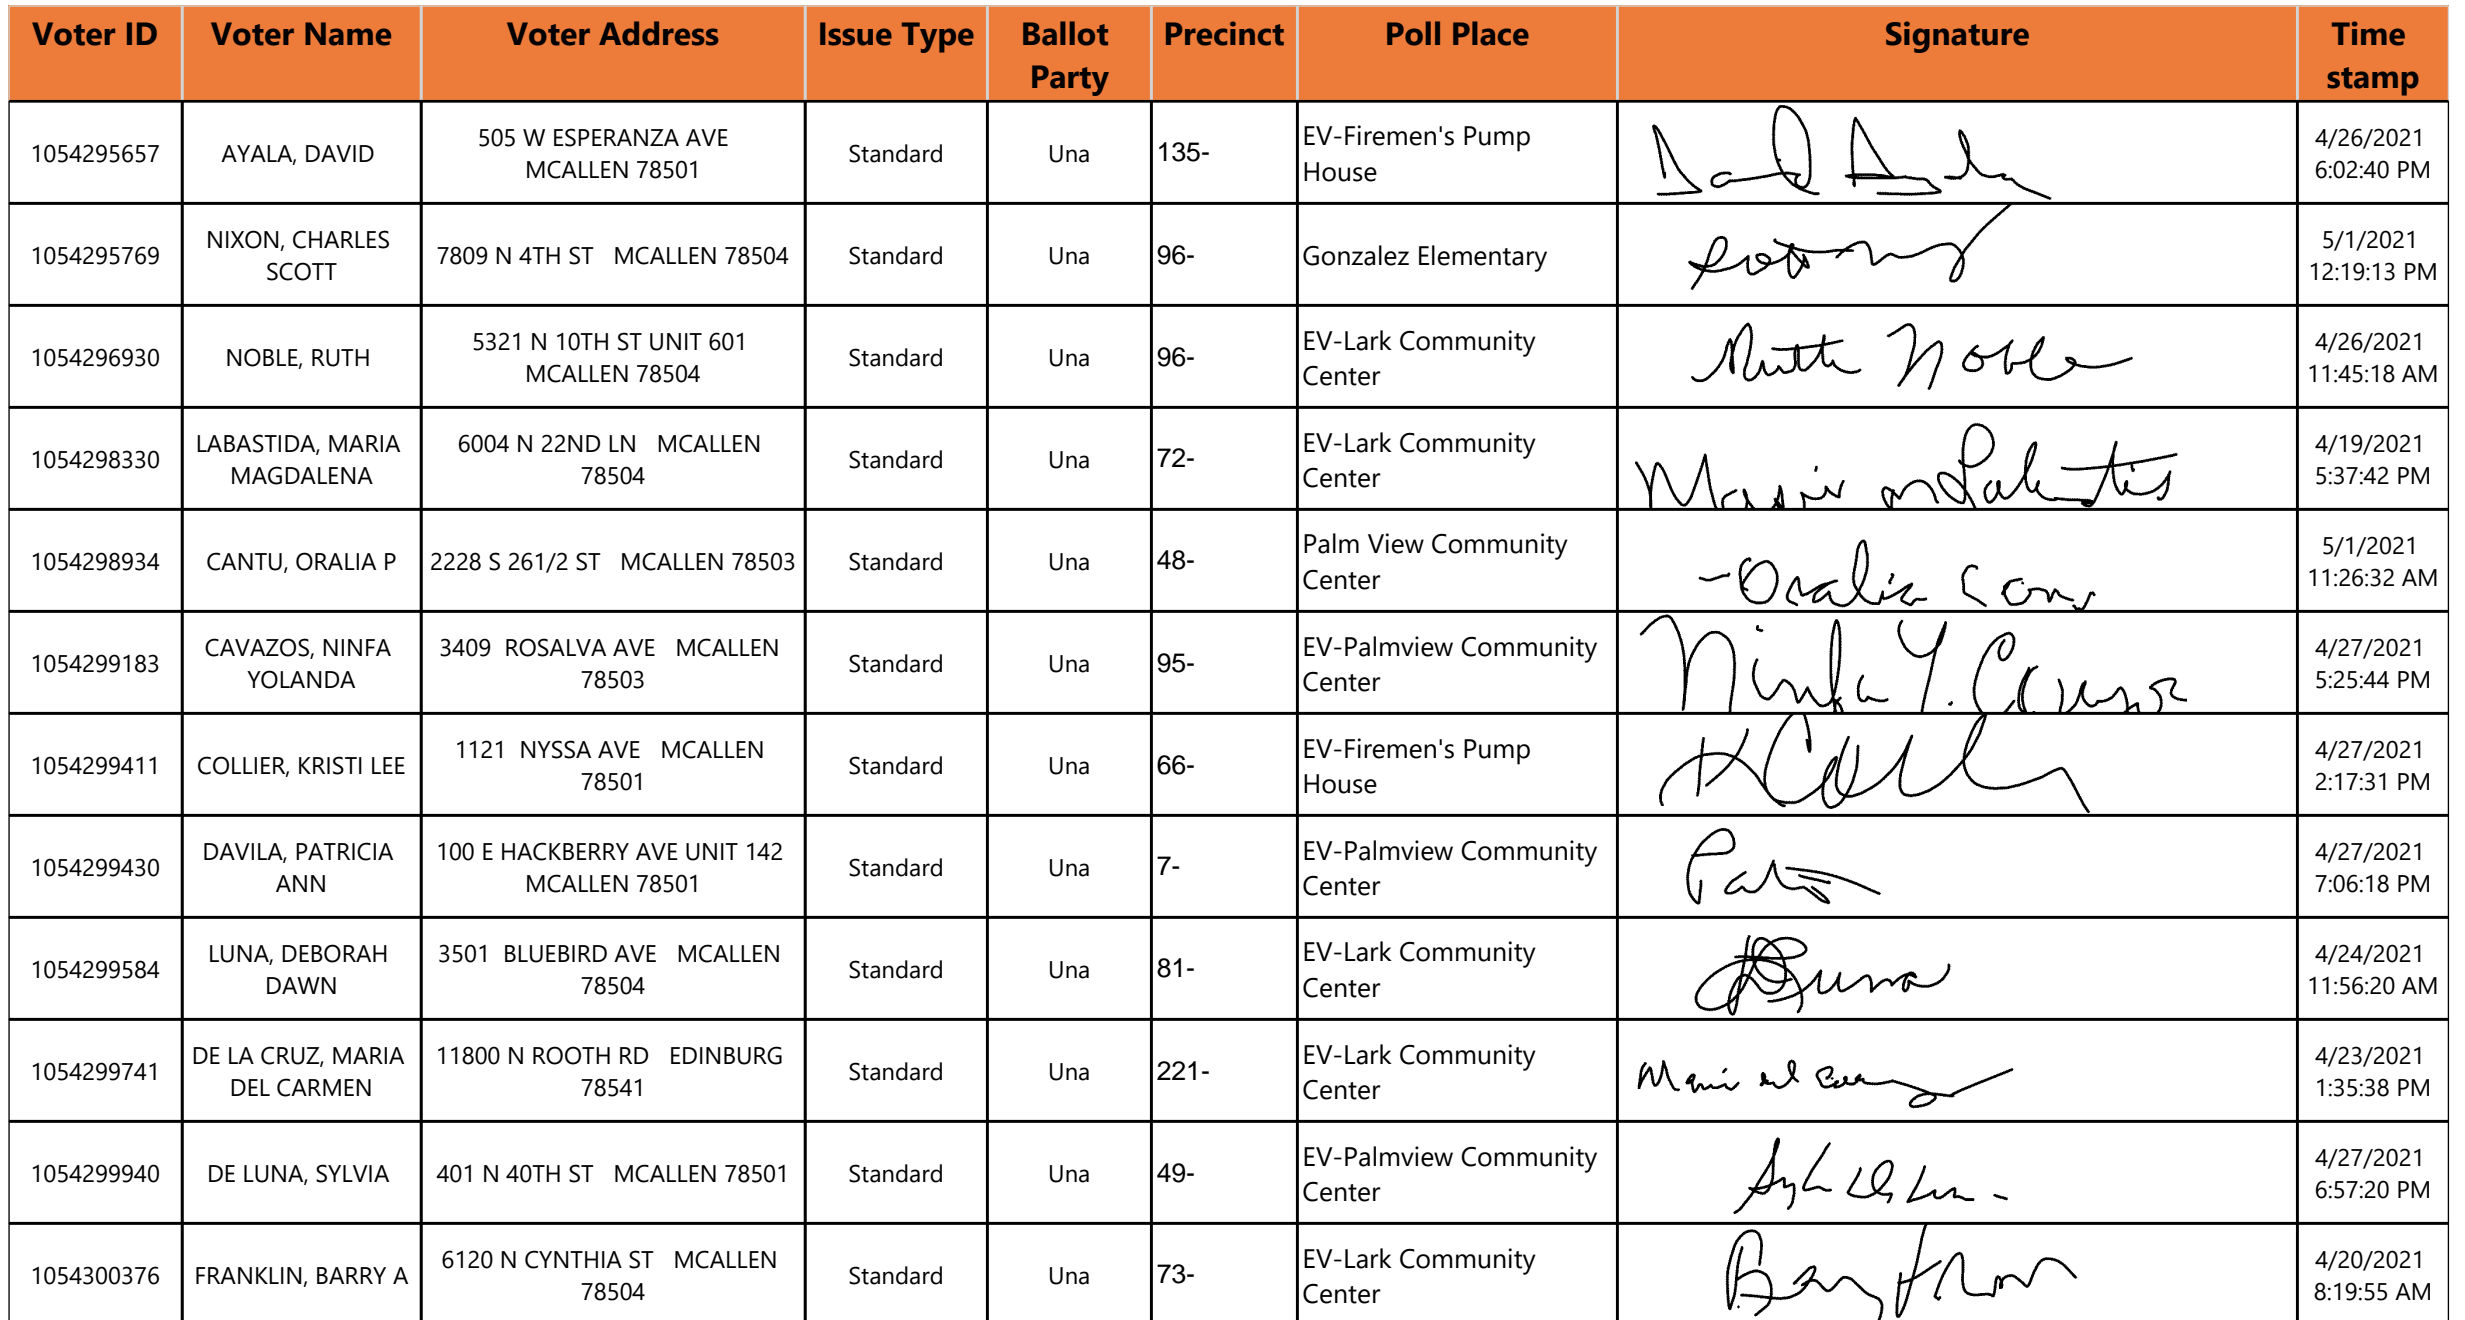 Voter ID Voter Name Voter Address Issue Type Ballot Party Precinct Poll Place Signature Time stamp
1054295657 AYALA, DAVID 505 W ESPERANZA AVE MCALLEN 78501 Standard Una 135- EV-Firemen's Pump House David 4/26/2021 6:02:40 PM
1054295769 NIXON, CHARLES SCOTT 7809 N 4TH ST MCALLEN 78504 Standard Una 96- Gonzalez Elementary 5/1/2021 12:19:13 PM
1054296930 NOBLE, RUTH 5321 N 10TH ST UNIT 601 MCALLEN 78504 Standard Una 96- EV-Lark Community Center Ruth Noble 4/26/2021 11:45:18 AM
1054298330 LABASTIDA, MARIA MAGDALENA 6004 N 22ND LN MCALLEN 78504 Standard Una 72- EV-Lark Community Center 4/19/2021 5:37:42 PM
1054298934 CANTU, ORALIA P 2228 S 261/2 ST MCALLEN 78503 Standard Una 48- Palm View Community Center Oralia 5/1/2021 11:26:32 AM
1054299183 CAVAZOS, NINFA YOLANDA 3409 ROSALVA AVE MCALLEN 78503 Standard Una 95- EV-Palmview Community Center Ninfa Y. 4/27/2021 5:25:44 PM
1054299411 COLLIER, KRISTI LEE 1121 NYSSA AVE MCALLEN 78501 Standard Una 66- EV-Firemen's Pump House 4/27/2021 2:17:31 PM
1054299430 DAVILA, PATRICIA ANN 100 E HACKBERRY AVE UNIT 142 MCALLEN 78501 Standard Una 7- EV-Palmview Community Center 4/27/2021 7:06:18 PM
1054299584 LUNA, DEBORAH DAWN 3501 BLUEBIRD AVE MCALLEN 78504 Standard Una 81- EV-Lark Community Center Luna 4/24/2021 11:56:20 AM
1054299741 DE LA CRUZ, MARIA DEL CARMEN 11800 N ROOTH RD EDINBURG 78541 Standard Una 221- EV-Lark Community Center 4/23/2021 1:35:38 PM
1054299940 DE LUNA, SYLVIA 401 N 40TH ST MCALLEN 78501 Standard Una 49- EV-Palmview Community Center 4/27/2021 6:57:20 PM
1054300376 FRANKLIN, BARRY A 6120 N CYNTHIA ST MCALLEN 78504 Standard Una 73- EV-Lark Community Center 4/20/2021 8:19:55 AM